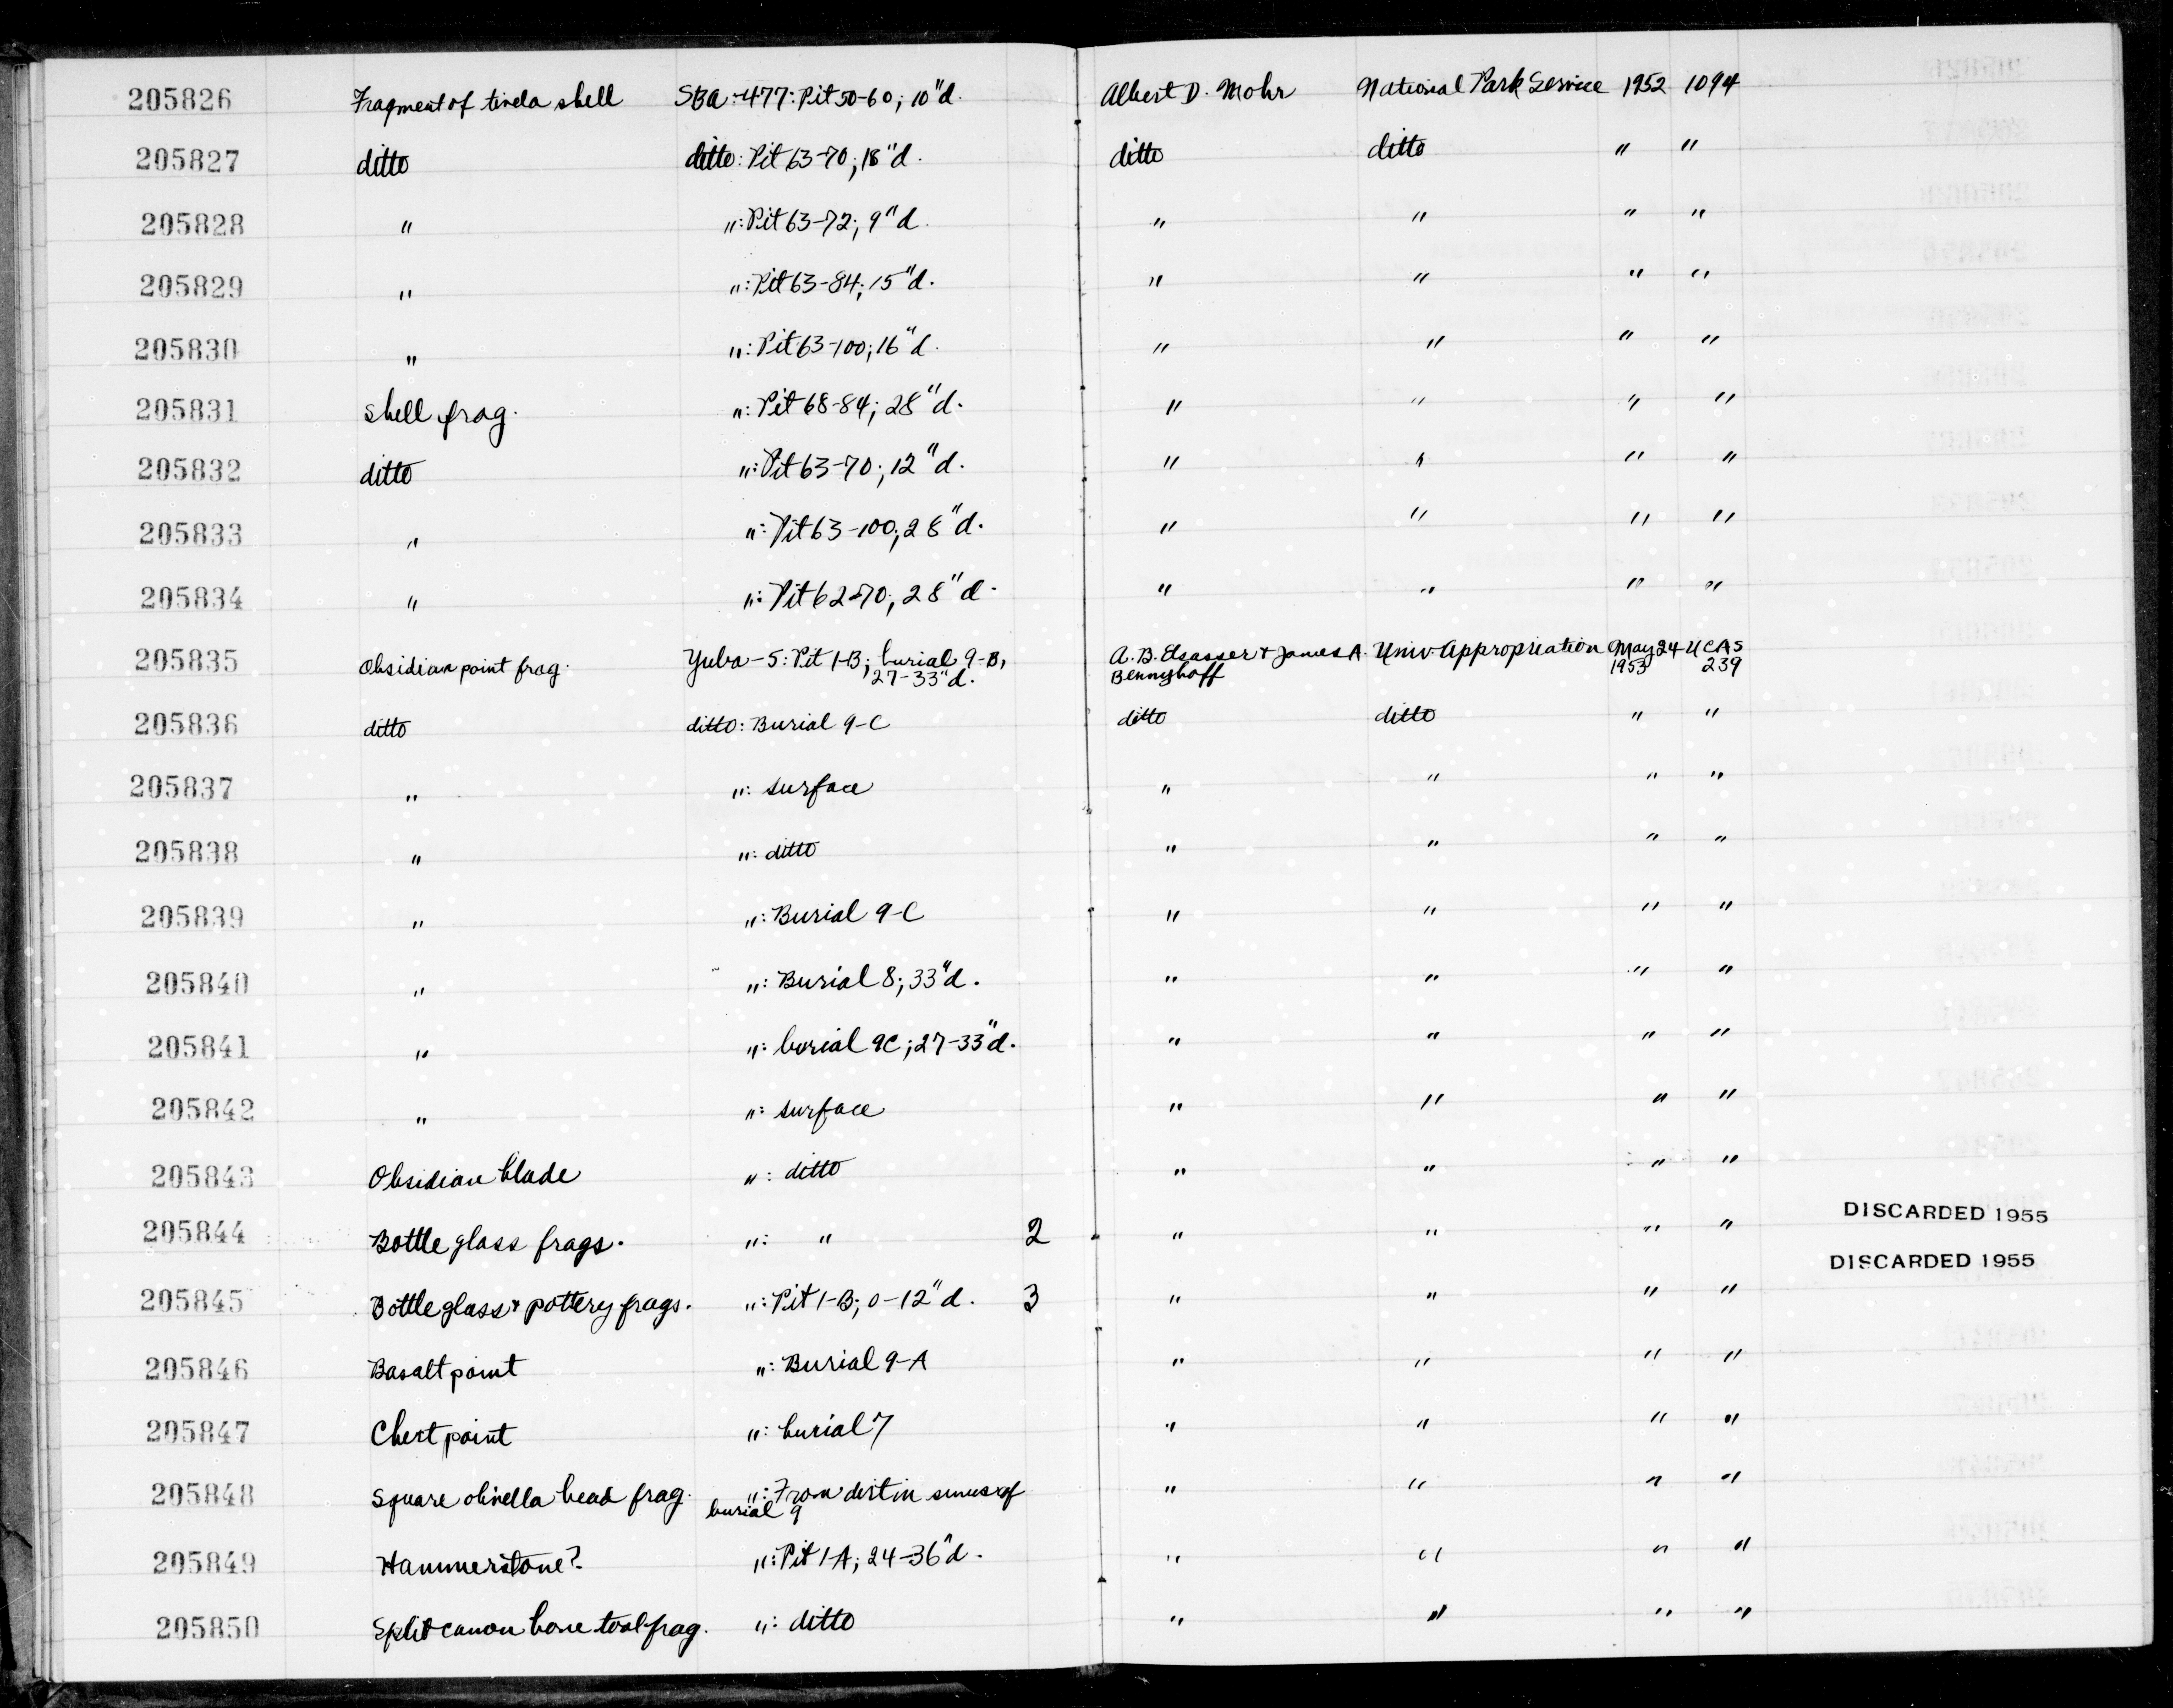 205826 Fragment of tivela shell SBa-477: Pit 50-60; 10"d. Albert D. Mohr National Park Service 1952 1094
205827 ditto ditto: Pit 63-70; 18"d. ditto ditto " "
205828 " ": Pit 63-72; 9"d. " " " "
205829 " ": Pit 63-84; 15"d. " " " "
205830 " ": Pit 63-100; 16"d. " " " "
205831 Shell frag. ": Pit 68-84; 28"d. " " " "
205832 ditto ": Pit 63-70; 12"d. " " " "
205833 " ": Pit 63-100; 28"d. " " " "
205834 " ": Pit 62-70; 28"d. " " " "
205835 Obsidian point frag. Yuba-5: Pit 1-B; burial 9-B, A.B. Elsasser + James A. Univ. Appropriation May 24 UCAS
27-33"d. Bennyhoff 1953 239
205836 ditto ditto: Burial 9-C ditto ditto " "
205837 " ": surface " " " "
205838 " ": ditto " " " "
205839 " ": Burial 9-C " " " "
205840 " ": Burial 8; 33"d. " " " "
205841 " ": burial 9C; 27-33"d. " " " "
205842 " ": surface " " " "
205843 Obsidian blade ": ditto " " " "
205844 Bottle glass frags. ": " 2 " " " " DISCARDED 1955
205845 Bottle glass + pottery frags. ": Pit 1-B; 0-12"d. 3 " " " " DISCARDED 1955
205846 Basalt point ": Burial 9-A " " " "
205847 Chert point ": burial 7 " " " "
205848 Square olivella bead frag. ": From dirt in sinus of " " " "
burial 9
205849 Hammerstone? ": Pit 1-A; 24-36"d. " " " "
205850 Split canon bone tool frag. ": ditto " " " "